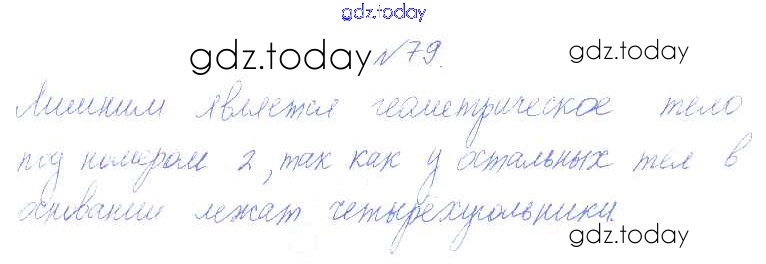 gdz.today
gdz.today №79. gdz.today
Лишним является геометрическое тело
под номером 2, так как у остальных тел в
основании лежат четырёхугольники.
gdz.today